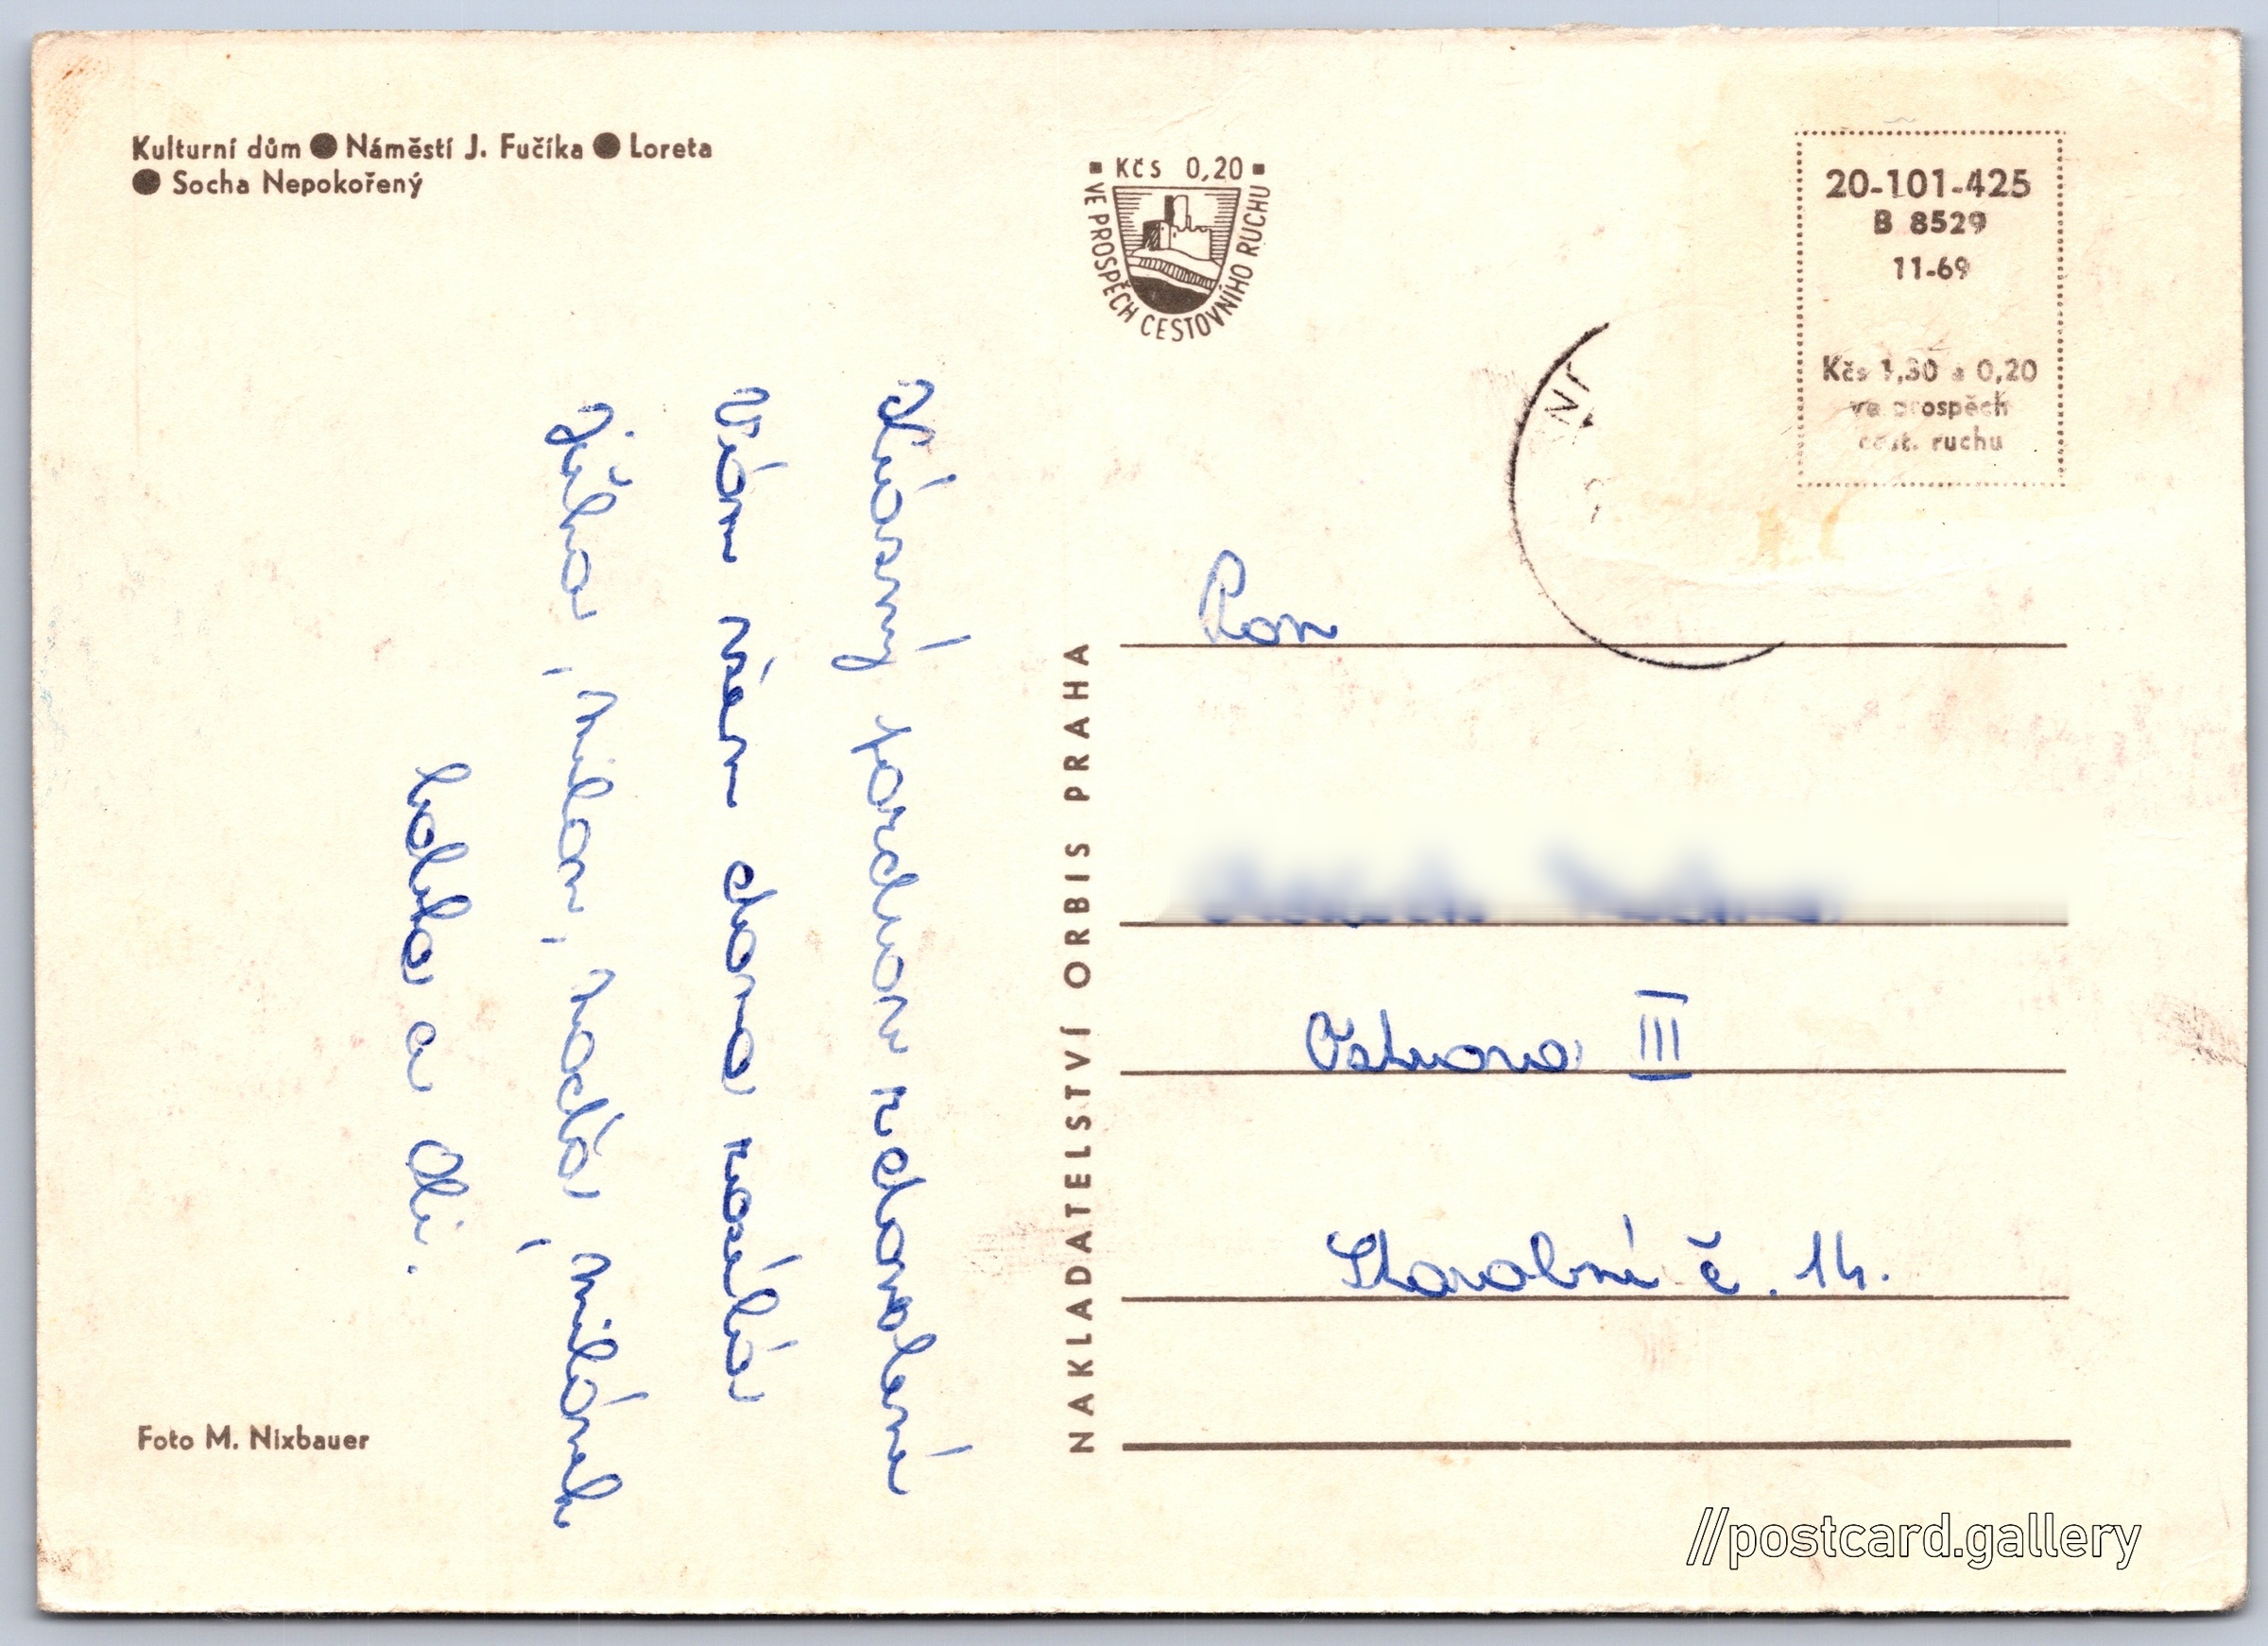 Kulturní dům ● Náměstí J. Fučíka ● Loreta
● Socha Nepokořený
Kčs 0,20
VE PROSPĚCH CESTOVNÍHO RUCHU
20-101-425
B 8529
11-69
Kčs 1,30 a 0,20
ve prospěch
cest. ruchu
Krásný pozdrav z dovolené
Vám všem doma posílá
Jiřina, Milan, Naďa, Milánek
Lidka a Oli.
NAKLADATELSTVÍ ORBIS PRAHA
Pan
Ostrava III
Starobní č. 14.
Foto M. Nixbauer
//postcard.gallery